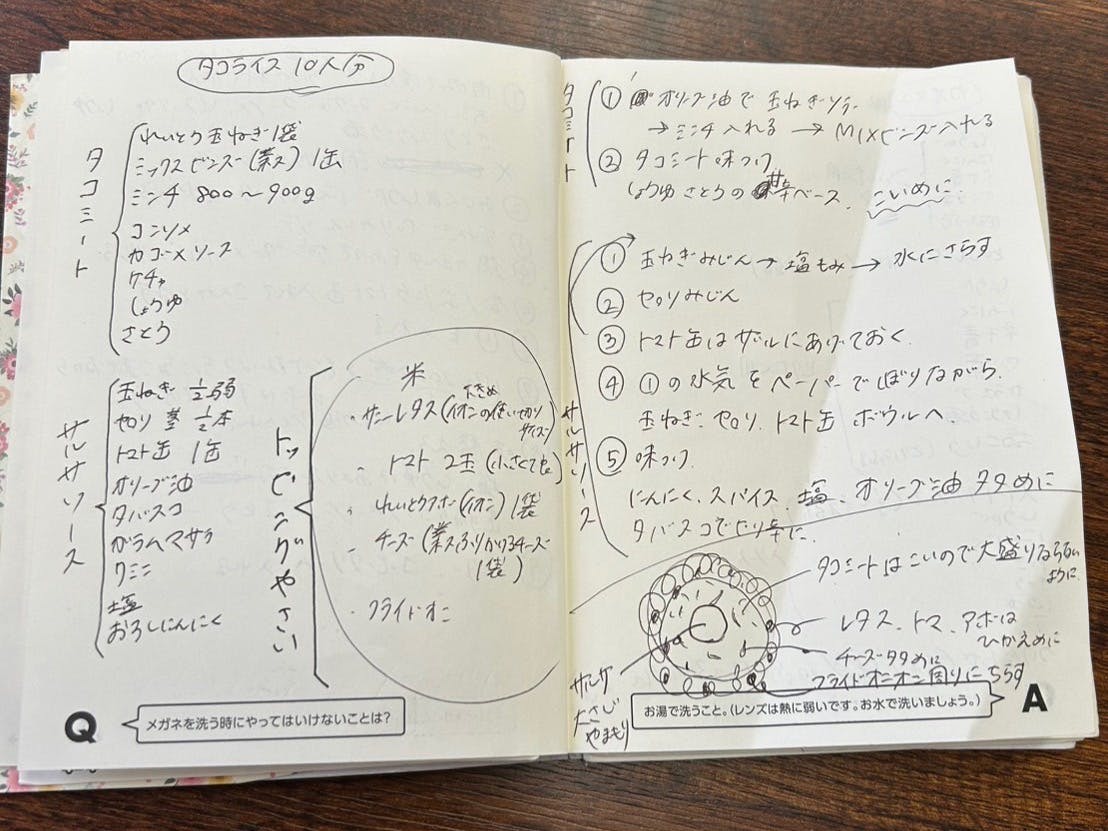 タコライス 10人分
タコミート
れいとう玉ねぎ1袋
ミックスビンズ(業ス) 1缶
ミンチ 800〜900g
コンソメ
カゴメソース
ケチャ
しょうゆ
さとう
サルサソース
玉ねぎ 1/2弱
セロリ 茎 1/2本
トマト缶 1缶
オリーブ油
タバスコ
ガラムマサラ
クミン
塩
おろしにんにく
トッピングやさい
米
サニーレタス(イオンの使い切り
大きめ
サイズ)
トマト 2玉 (小さくても)
れいとうアボ(イオン) 1袋
チーズ(業スふりかけるチーズ
1袋)
フライドオニ
Q メガネを洗う時にやってはいけないことは?
タコミート
① オリーブ油で玉ねぎソテー
→ミンチ入れる→MIXビンズ入れる
② タコミート味つけ
しょうゆ さとうの甘辛ベース、こいめに
サルサソース
① 玉ねぎみじん→塩もみ→水にさらす
② セロリみじん
③ トマト缶はザルにあげておく.
④ ①の水気をペーパーでしぼりながら
玉ねぎ. セロリ. トマト缶 ボウルへ
⑤ 味つけ
にんにく、スパイス、塩、オリーブ油 タタめに
タバスコで辛に.
タコミートはこいので大盛りならない
ように
レタス、トマ、アボは
ひかえめに
チーズタタめに
フライドオニオン周りにちらす
サルサ
大さじ
やまもり
お湯で洗うこと。(レンズは熱に弱いです。お水で洗いましょう。) A